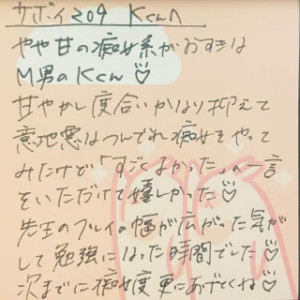 サボイ209 Kくんへ
やや甘の痴女系がお好きな
M男のKくん♡
甘やかし度合いかなり抑えて
意地悪なつんでれ痴女をやって
みたけど「すごくよかった」の一言
をいただけて嬉しかった♡
先生のプレイの幅が広がった気が
して勉強になった時間でした♡
次までに痴女度更にあげてくね♡